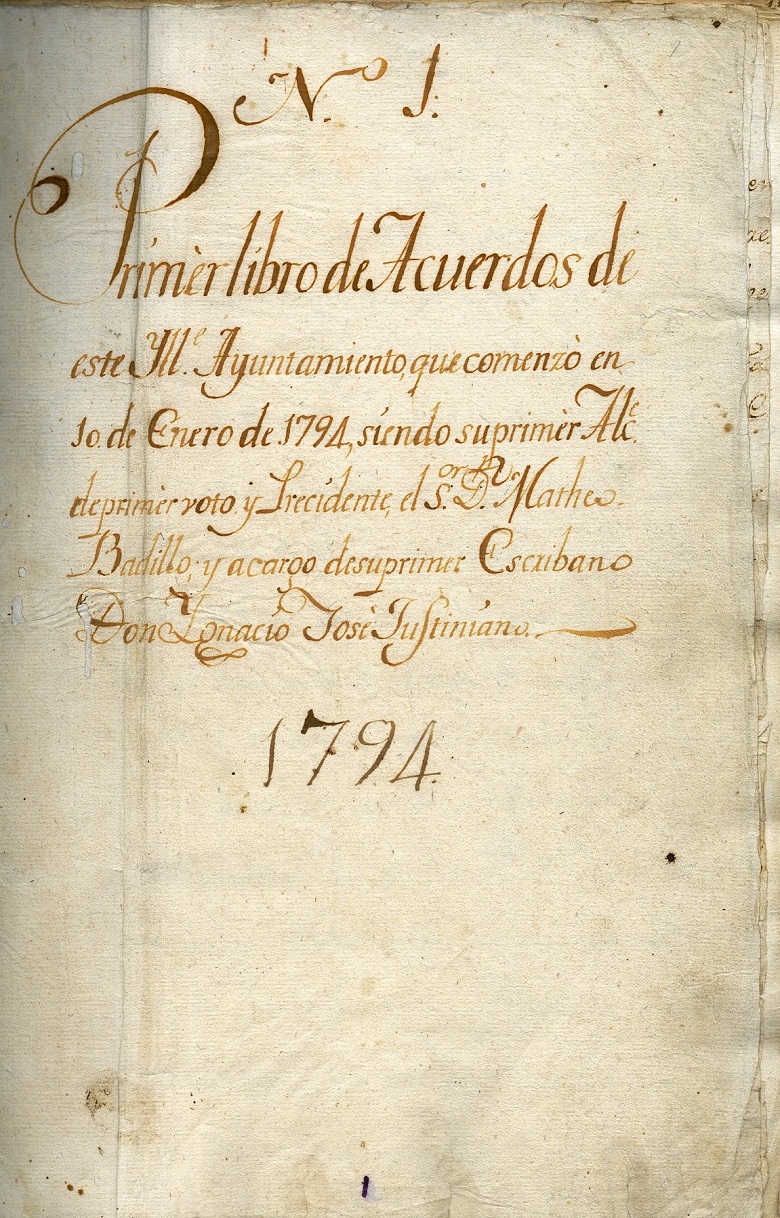 N.º 1.
Primèr libro de Acuerdos de
este Yll.e Ayuntamiento, que comenzò en
10. de Enero de 1794, siendo su primèr Alc.e
de primèr voto, y Precidente, el S.or D.n Matheo
Badillo; y a cargo de su primer Escribano
Don Ygnacio Josè Justiniano.
1794
1